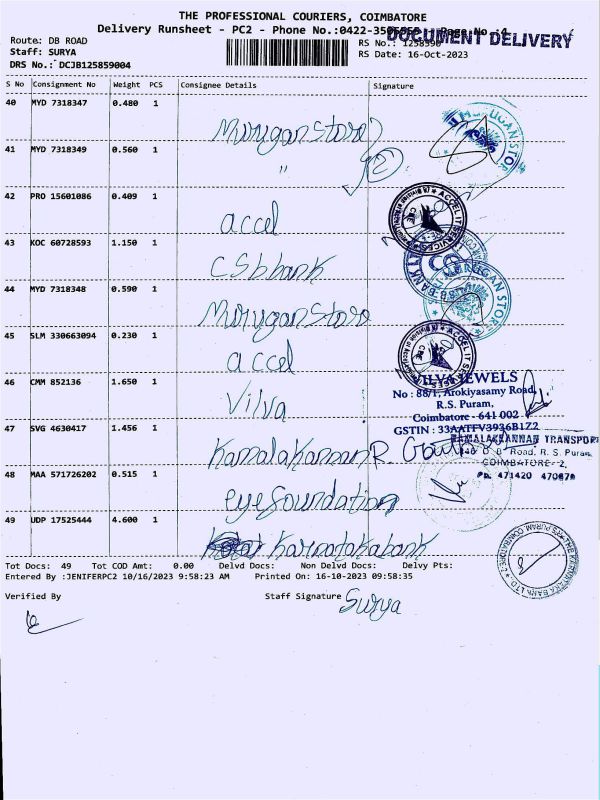 THE PROFESSIONAL COURIERS, COIMBATORE
Delivery Runsheet - PC2 - Phone No.:0422-
DOCUMENT DELIVERY
Route: DB ROAD
RS No.: 1258590
Staff: SURYA
RS Date: 16-Oct-2023
DRS No.: DCJB125859004
S No Consignment No Weight PCS Consignee Details Signature
40 MYD 7318347 0.480 1
Murugan Store
41 MYD 7318349 0.560 1
" 2
42 PRO 15601086 0.409 1
accel
ACCEL IT SERVICES
43 KOC 60728593 1.150 1
CSb bank
44 MYD 7318348 0.590 1
Murugan Store
MURUGAN STOR
45 SLM 330663094 0.230 1
accel
ACCEL IT SERVICES
46 CMM 852136 1.650 1
Vilva
VILVA JEWELS
No : 88/1, Arokiyasamy Road,
R.S. Puram,
Coimbatore - 641 002
GSTIN : 33AATFV3936B1Z2
47 SVG 4630417 1.456 1
Kamalakannan R
KAMALAKANNAN TRANSPORT
D. B. Road, R. S. Puram,
COIMBATORE - 2,
PH. 471420 470879
48 MAA 571726202 0.515 1
eye foundation
49 UDP 17525444 4.600 1
Karnataka bank
THE KARNATAKA BANK LTD.
Tot Docs: 49 Tot COD Amt: 0.00 Delvd Docs: Non Delvd Docs: Delvy Pts:
Entered By :JENIFERPC2 10/16/2023 9:58:23 AM Printed On: 16-10-2023 09:58:35
Verified By Staff Signature Surya